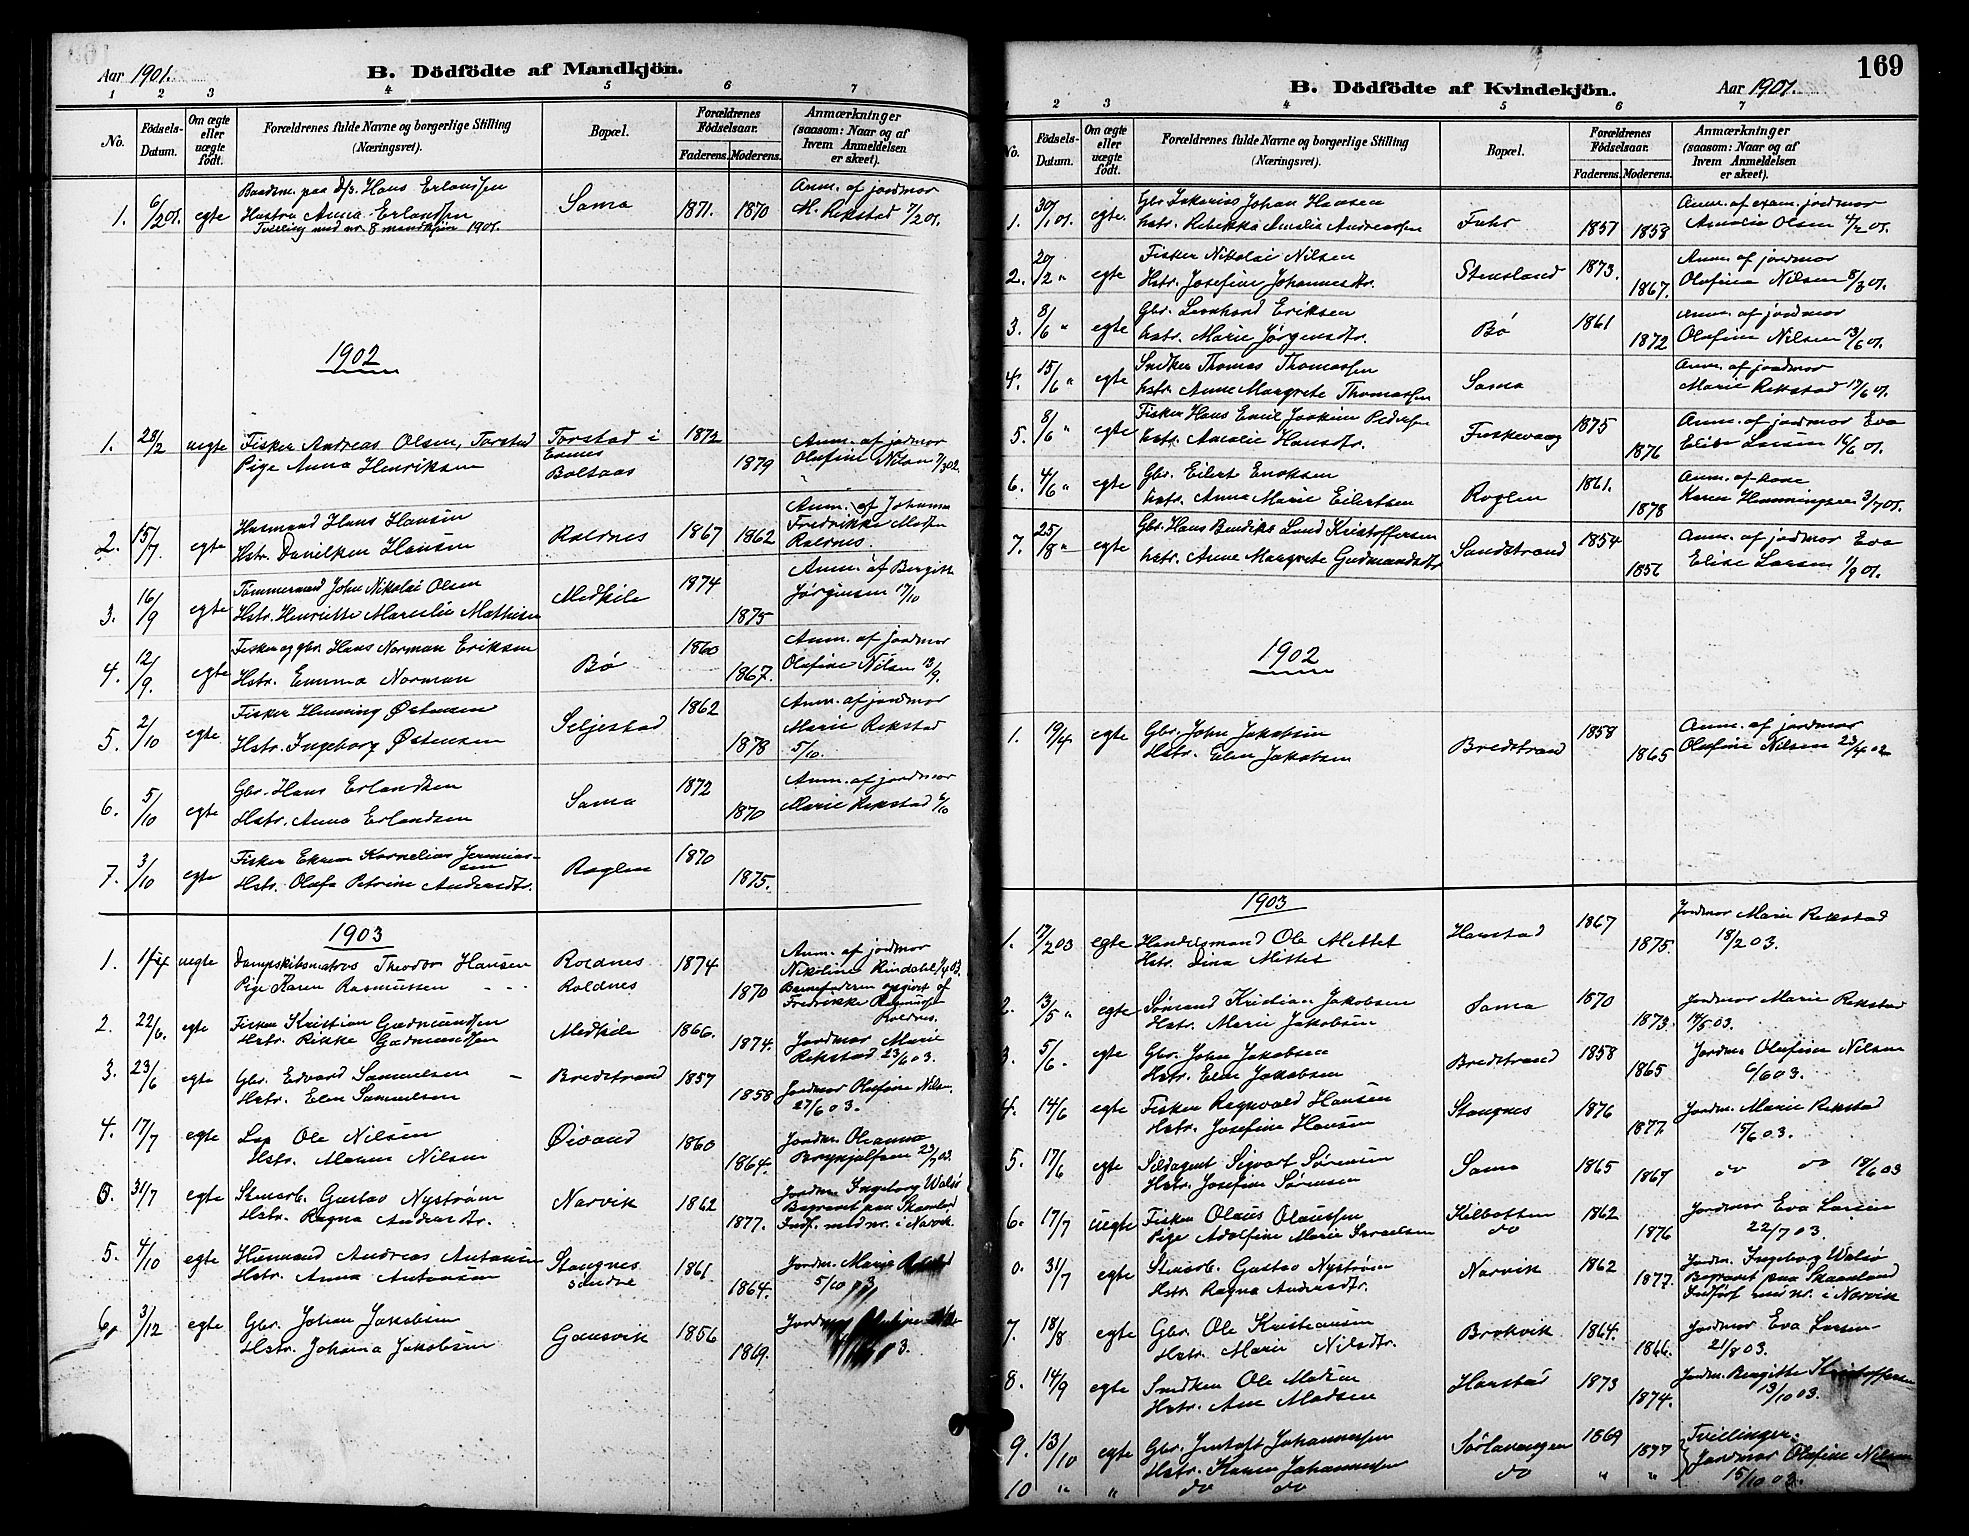 Aar 1901.
B. Dödfödte af Mandkjön.
1 2 3 4 5 6 7
No.
Födsels-Datum.
Om ægte eller uægte födt.
Forældrenes fulde Navne og borgerlige Stilling (Næringsvei).
Bopæl.
Forældrenes Födselsaar.
Faderens. Moderens.
Anmærkninger (saasom: Naar og af hvem Anmeldelsen er skeet).
1. 6/2 01. egte Baadsm. paa d/s. Hans Erlandsen Sama 1871. 1870 Anm. af jordmor
Hustru Anna Erlandsen M. Rekstad 7/2 01.
Tvilling med nr. 8 mandkjøn 1901.
1902
1. 28/2 uegte Fisker Andreas Olsen, Torstad Torstad i 1872 Anm. af jordmor
Evenes
Pige Anna Henriksen Boltaas 1879 Olufine Nilsen 7/3 02.
2. 15/7. egte Husmand Hans Hansen Roldnes 1867 1862 Anm. af Johanna
Hstr. Danilken Hansen Fredrikke
Roldnes.
3. 16/9 egte Tømmermand John Nikolai Olsen Medkile 1874 Anm. af Bergitte
Hstr. Henriette Mareslie Mathisen 1875 Jørginsen 17/10
4. 12/9. egte Fisker og gbr. Hans Norman Eriksen Bø 1860 Anm. af jordmor
Hstr. Emma Norman 1867. Olufine Nilsen 13/9.
5. 2/10 egte Fisker Henning Østensen Seljestad 1862 Anm. af jordmor
Hstr. Ingeborg Østensen 1878 Marie Rekstad
5/10.
6. 5/10 egte Gbr. Hans Erlandsen Sama 1872 Anm. af jordmor
Hstr. Anna Erlandsen 1870 Marie Rekstad 6/10
7. 3/10 egte Fisker Kornelius Jermias-
sen Roglen 1870
Hstr. Olufa Petrine Andersdtr. 1875.
1903
1. 1/4 uegte Dampskibsmatros Theodor Hansen Roldnes 1874 Anm. af jordmor
Pige Karen Rasmussen Roldnes 1870 Nikoline Rindahl 1/4 03.
Barnefaderen opgivet af
Fredrikke
Roldnes.
2. 22/6. egte Fisker Kristian Gudmundsen Medkile 1866. Jordmor Marie
Hstr. Rikke Gudmundsen 1874. Rekstad 23/6 03.
3. 23/6 egte Gbr. Edvard Samuelsen Bredstrand 1857 Jordmor Olufine Nilsen
Hstr. Elen Samuelsen 1858 27/6 03.
4. 17/7 egte Lap Ole Nilsen Øivand 1860 Jordm. Oleanna
Hstr. Maren Nilsen 1864. Brynjulfsen 23/7 03.
0. 31/7 egte Stenarb. Gustav Nystrøm Narvik 1862 Jordm. Ingeborg Walsø
Hstr. Ragna Andersdtr. 1877. Begravet paa Skaanland
Indf. med nr. i Narvik.
5. 4/10 egte Husmand Andreas Antonsen Stangnes 1861 Jordm. Marie Rekstad
Hstr. Anna Antonsen søndre 1864. 5/10 03
6. 3/12 egte Gbr. Johan Jakobsen Gausvik 1856 Jordmor Olufine
Hstr. Johana Jakobsen 1869.
169
B. Dödfödte af Kvindekjön.
Aar 1901.
1 2 3 4 5 6 7
No.
Födsels-Datum.
Om ægte eller uægte födt.
Forældrenes fulde Navne og borgerlige Stilling (Næringsvei).
Bopæl.
Forældrenes Födselsaar.
Faderens. Moderens.
Anmærkninger (saasom: Naar og af hvem Anmeldelsen er skeet).
1. 30/1 01. egte. Gbr Sakarias Johan Hansen Fuhr 1857 1858 Anm. af exam. jordmor
Hstr. Rebekka Amalie Andreassen Amalie Olsen 4/2 01.
2. 20/2 " egte Fisker Nikolai Nilsen Stensland 1873. Anm. af jordmor
Hstr. Josefine Johannesdtr. 1867. Olufine Nilsen 8/3 01.
3. 8/6 " egte Gbr. Leonhard Eriksen Bø 1861 Anm. af jordmor
Hstr. Marie Jørgensdtr. 1872 Olufine Nilsen 13/6 01.
4. 15/6 " egte Snedker Thomas Thomassen Sama Anm. af jordmor
Hstr. Anne Margrete Thomassen Marie Rekstad 17/6 01.
5. 8/6 " egte Fisker Hans Emil Joakim Pedersen Fuskevaag 1875 Anm. af jordmor Eva
Hstr. Amalie Hansdtr. 1876 Elise Larsen 16/6 01.
6. 4/6 " egte Gbr. Eilert Enoksen Roglen 1861. Anm. af kone
Hstr. Anna Marie Eilertsen 1878 Karen Henningsen 3/7 01.
7. 25/8 " egte Gbr. Hans Bendiks Lund Kristoffersen Sandstrand 1854 Anm. af jordmor Eva
Hstr. Anne Margrete Gudmundsdtr 1856 Elise Larsen 1/9 01.
1902
1. 19/4 egte Gbr. John Jakobsen Bredstrand 1858 Anm. af jordmor
Hstr. Elen Jakobsen 1865 Olufine Nilsen 23/4 02
1903
1. 17/2 03 egte Handelsmand Ole Mettet Harstad 1867 Jordmor Marie Rekstad
Hstr. Dina Mittet 1875. 18/2 03.
2. 13/5 " egte Sømand Kristian Jakobsen Sama 1870 Jordmor Marie Rekstad
Hstr. Marie Jakobsen 1873. 14/5 03.
3. 5/6. egte Gbr. John Jakobsen Bredstrand 1858 Jordm. Olufine Nilsen
Hstr. Elen Jakobsen 1865 6/6 03.
4. 14/6 egte Fisker Ragnvald Hansen Stangnes 1876 Jordm. Marie Rekstad
Hstr. Josefine Hansen 1877. 15/6 03.
5. 17/6 egte Sildagent Sigvart Sørensen Sama 1865 do do 18/6 03
Hstr. Josefine Sørensen 1867
6. 17/7 uegte Fisker Olaus Olaussen Kilbotten 1862 Jordmor Eva Larsen
Pige Adolfine Marie Israelsen do 1876 22/7 03.
0. 31/7 egte Stenarb. Gustav Nystrøm Narvik 1862 Jordm. Ingeborg Walsø
Hstr. Ragna Andersdtr. 1877. Begravet paa Skaanland
Indført med nr. i Narvik
7. 18/8 egte Gbr. Ole Kristiansen Brokvik 1864. Jordmor Eva Larsen
Hstr. Marie Nilsdtr. 1866. 21/8 03.
8. 14/9 egte Snedker Ole Madsen Harstad 1873 Jordm. Birgitte Kristoffersen
Hstr. Ane Madsen 1874. 13/10 03.
9. 13/10 egte Gbr. Johannessen Sørlavangen 1869 Tvillinger.
Hstr. Karen Johannessen do 1877 Jordmor Olufine Nilsen
10 " " do do " " 15/10 03.